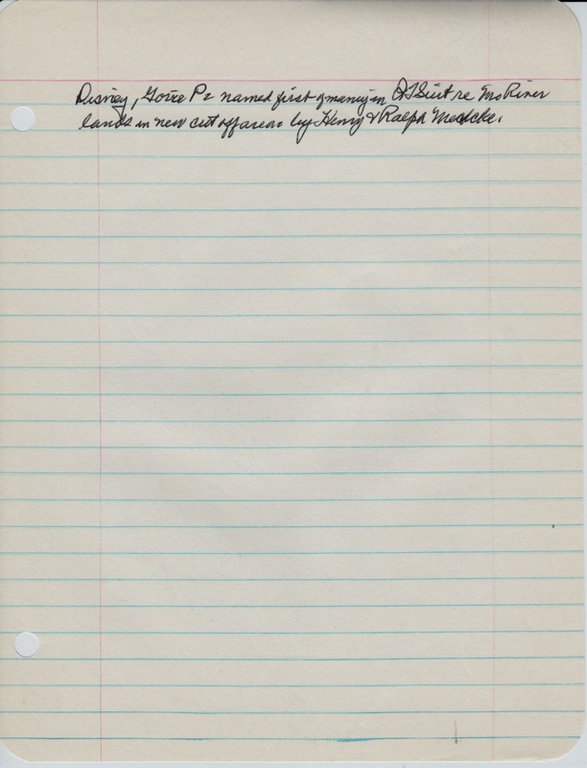 Disney, named first of many in QT Suit re Mo River
lands in new cut off areas by Henry & Ralph